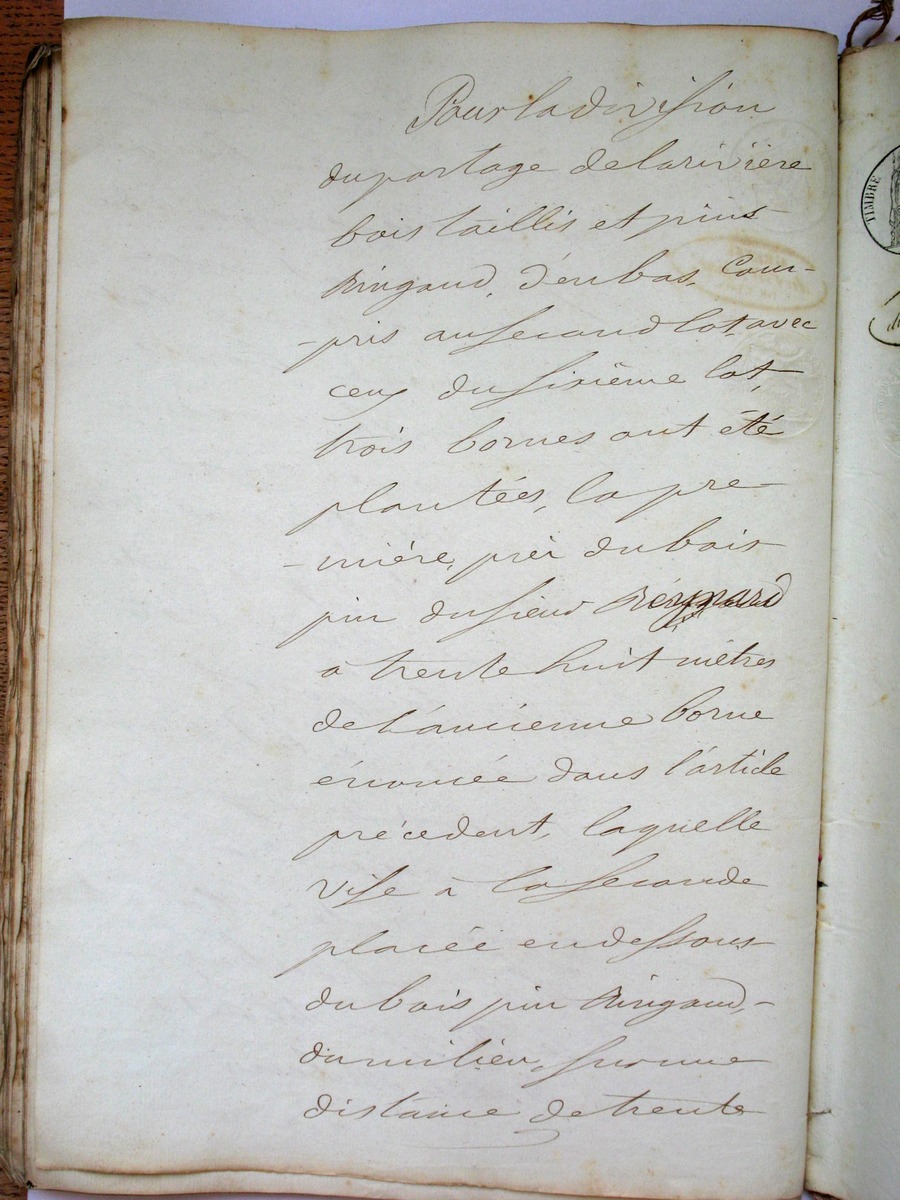 Pour la division
du partage de la rivière
bois taillis et pins
Ringaud, d'en bas, Com-
-pris au second lot avec
ceux du sixième lot,
trois bornes ont été
plantées, la pre-
-mière, près du bois
pin du sieur
à trente huit mètres
de l'ancienne borne
énoncée dans l'article
précédent, laquelle
vise à la seconde
placée en dessous
du bois pin Ringaud,-
du milieu, sur une
distance de trente
TIMBRE